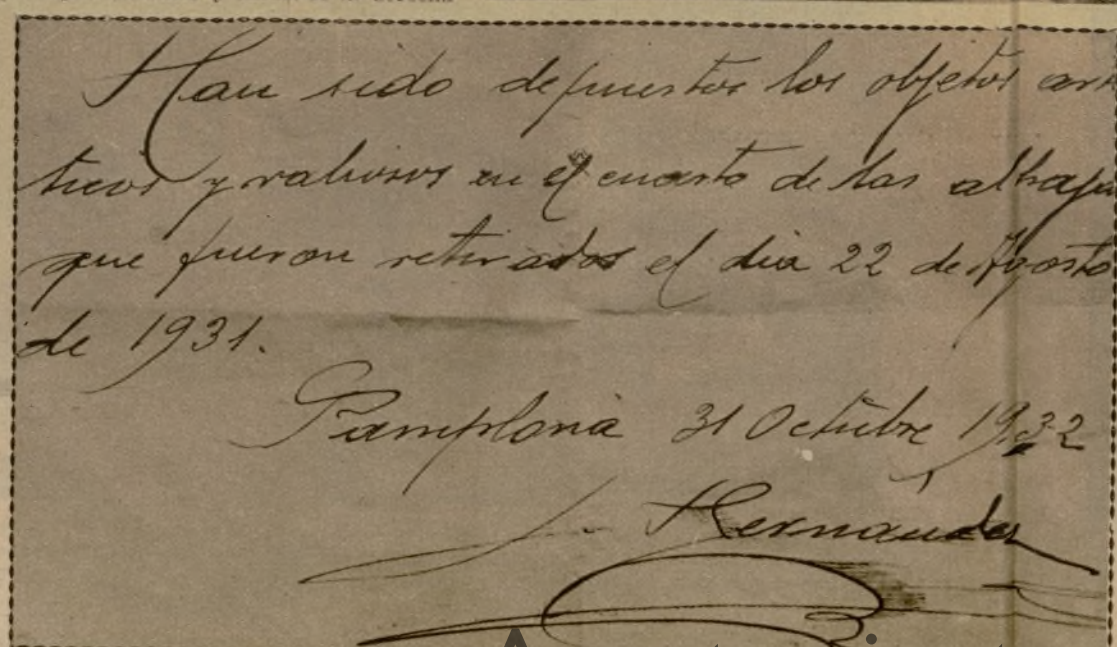 Han sido depuestos los objetos artí
ticos y valiosos en el cuarto de las alhajas
que fueron retirados el dia 22 de Agosto
de 1931.
Pamplona 31 Octubre 1932
J. Hernández